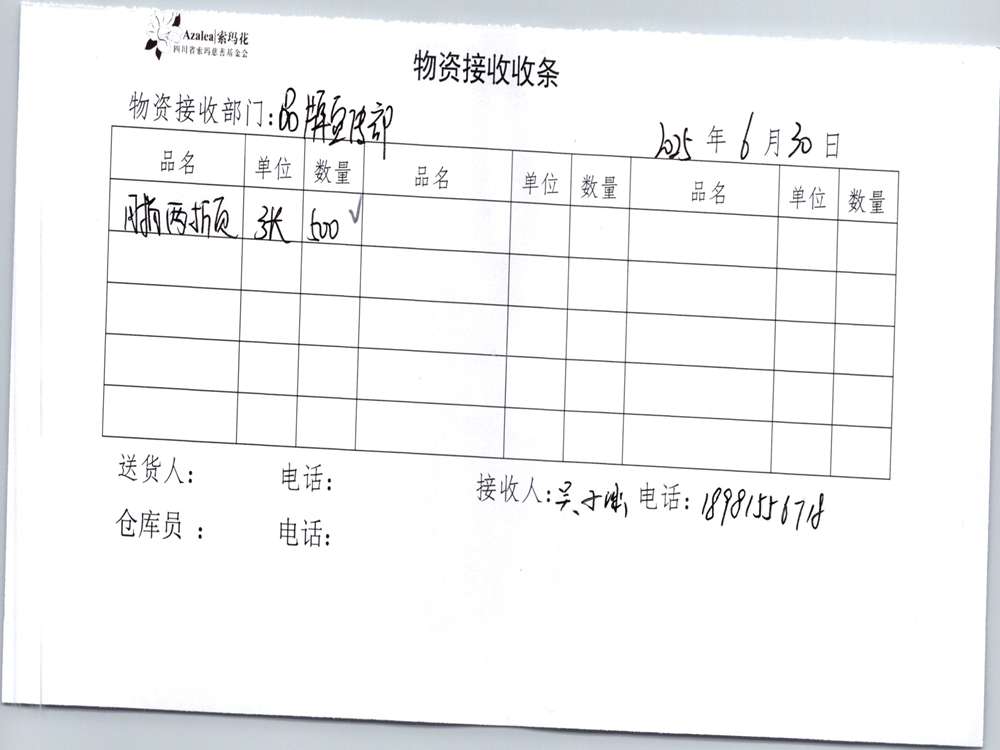 Azalea|索玛花
四川省索玛慈善基金会
物资接收收条
物资接收部门:品牌宣传部
2025 年 6 月 30 日
品名 单位 数量 品名 单位 数量 品名 单位 数量
两折页 张 500 ✓
送货人: 电话: 接收人:吴 电话: 18981556718
仓库员 : 电话: